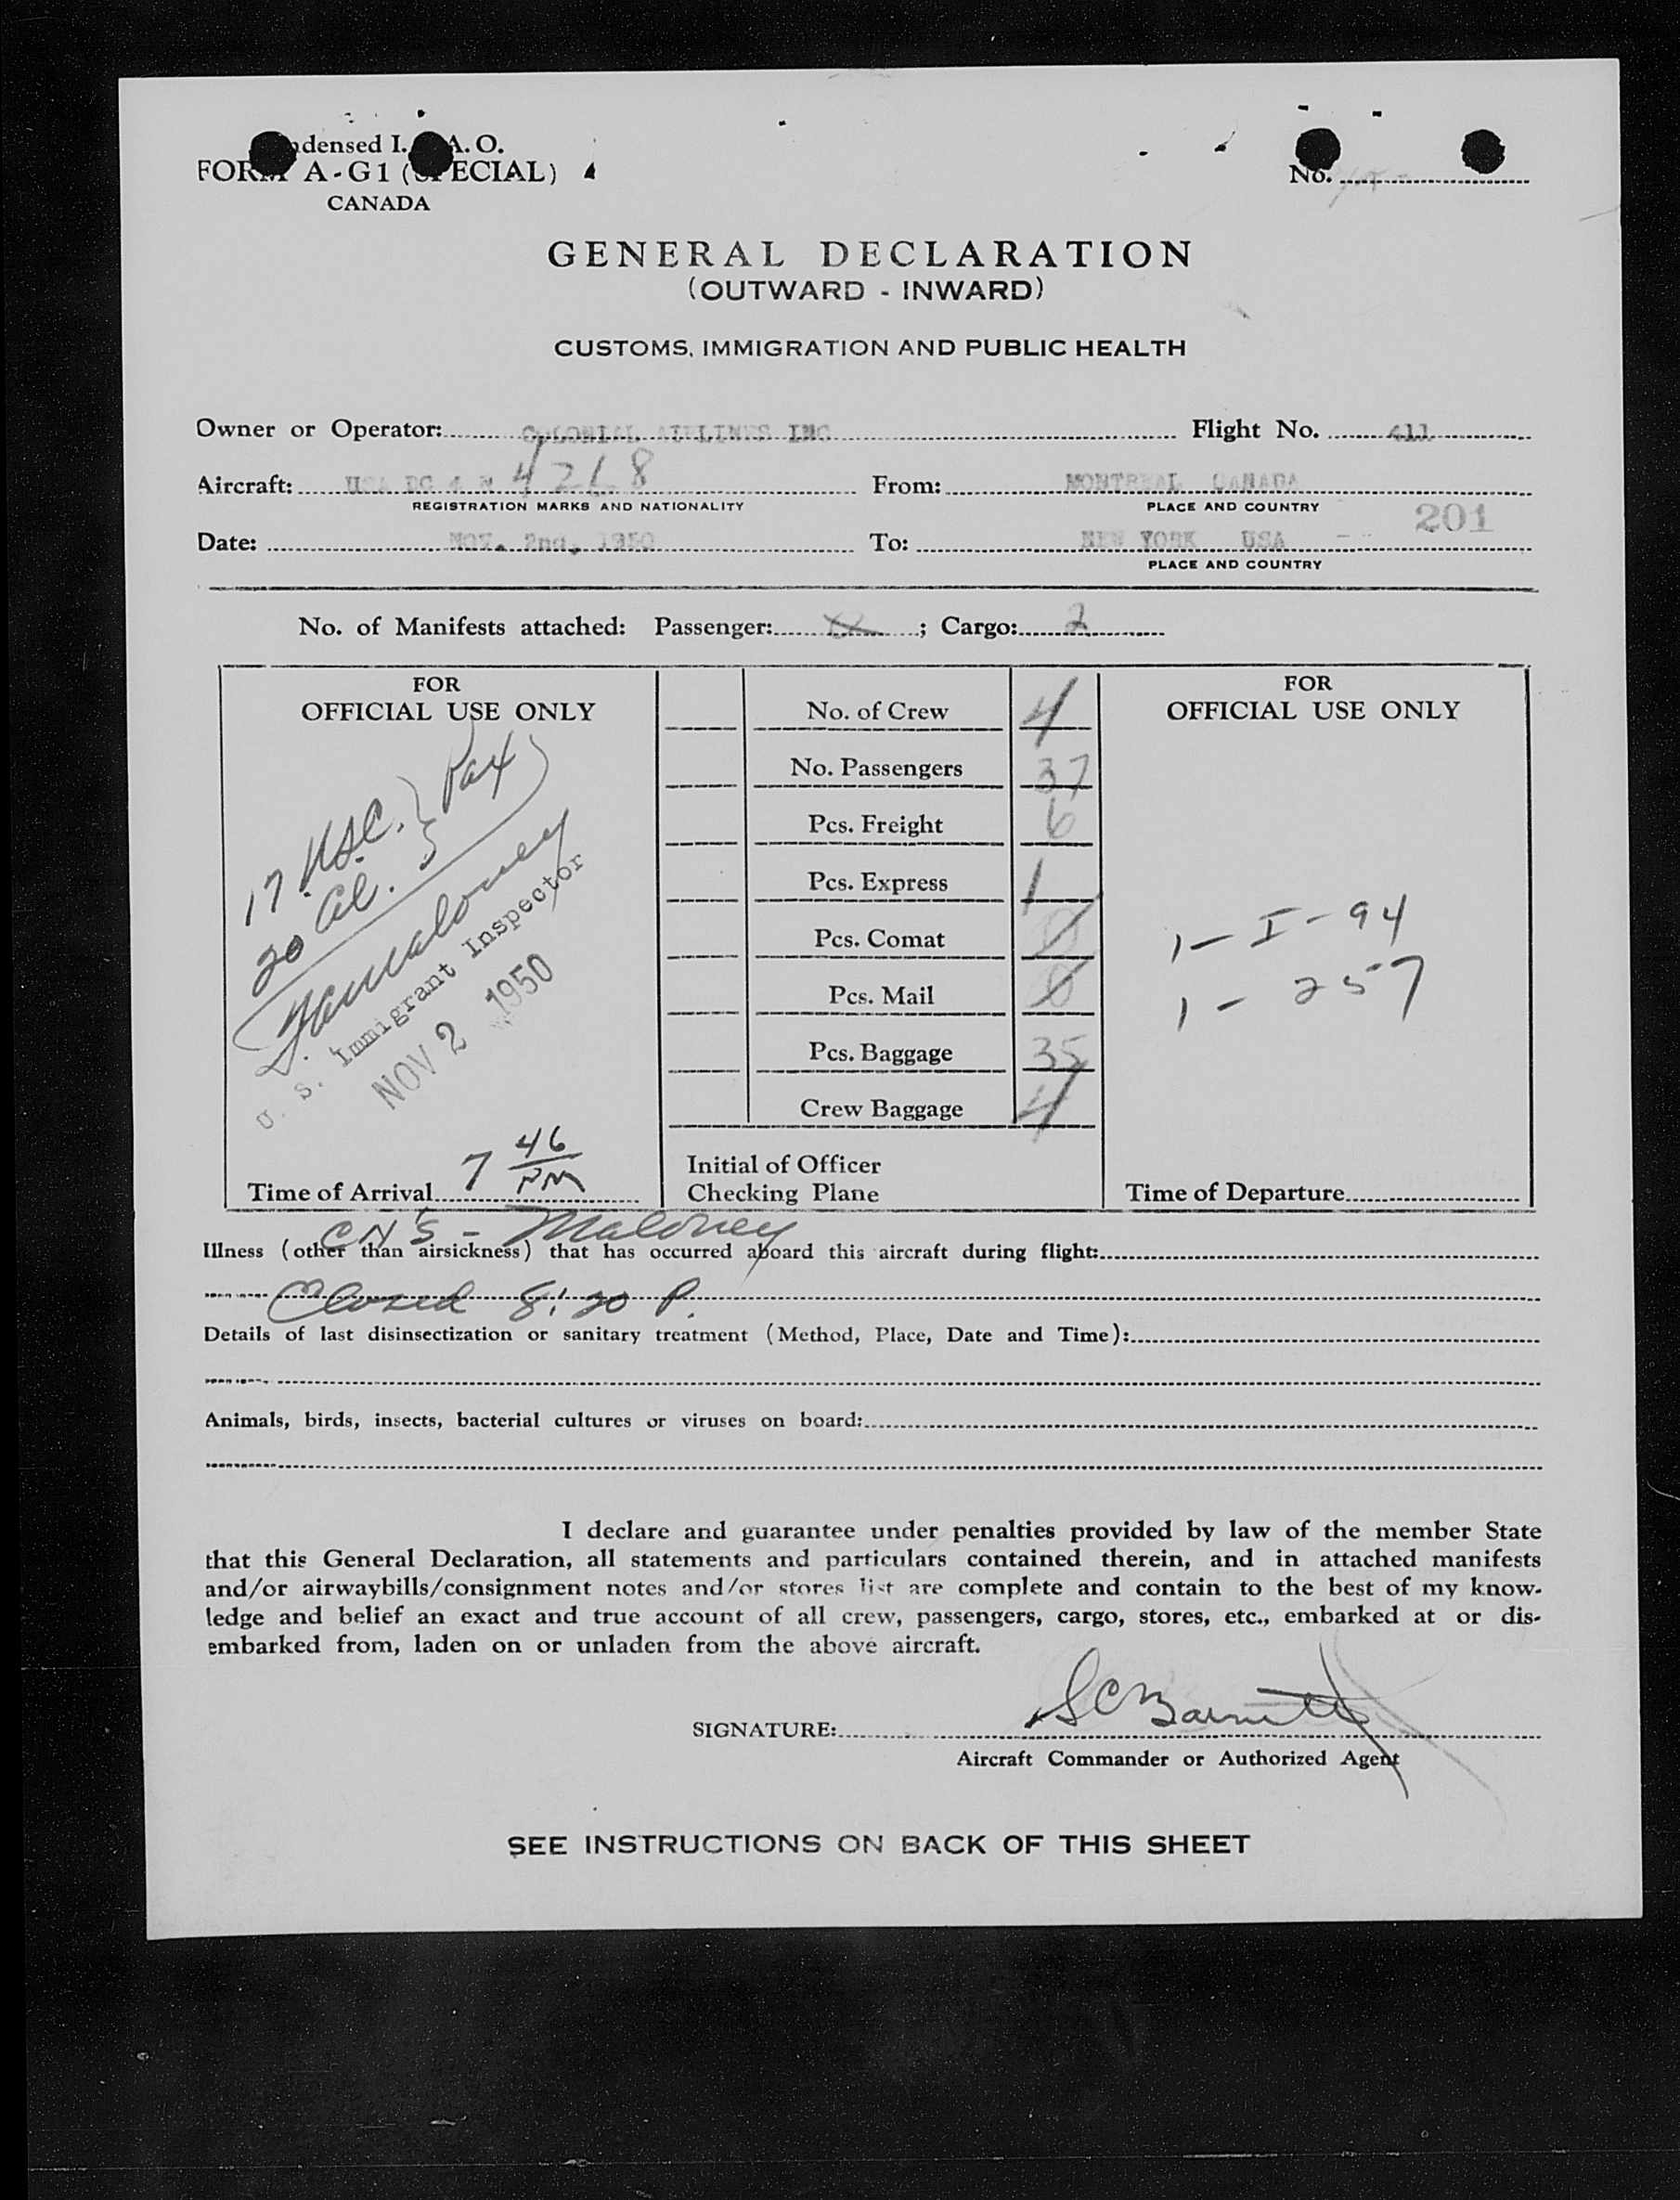 Condensed I.C.A.O.
FORM A-G1 (SPECIAL)
CANADA
No.
GENERAL DECLARATION
(OUTWARD - INWARD)
CUSTOMS, IMMIGRATION AND PUBLIC HEALTH
Owner or Operator: COLONIAL AIRLINES INC Flight No. 411
Aircraft: USA DC 4 N 4268 From: MONTREAL CANADA
REGISTRATION MARKS AND NATIONALITY PLACE AND COUNTRY
201
Date: NOV. 2nd, 1950 To: NEW YORK USA
PLACE AND COUNTRY
No. of Manifests attached: Passenger: ; Cargo: 2
FOR
OFFICIAL USE ONLY
17 USC. } Pax
20 Al.
Maloney
U. S. Immigrant Inspector
NOV 2 1950
Time of Arrival 7 46 PM
No. of Crew 4
No. Passengers 37
Pcs. Freight 6
Pcs. Express 1
Pcs. Comat 0
Pcs. Mail 0
Pcs. Baggage 35
Crew Baggage 4
Initial of Officer
Checking Plane
FOR
OFFICIAL USE ONLY
1 - I - 94
1 - 257
Time of Departure
CN'S - Maloney
Illness (other than airsickness) that has occurred aboard this aircraft during flight:
Closed 8:20 P.
Details of last disinsectization or sanitary treatment (Method, Place, Date and Time):
Animals, birds, insects, bacterial cultures or viruses on board:
I declare and guarantee under penalties provided by law of the member State
that this General Declaration, all statements and particulars contained therein, and in attached manifests
and/or airwaybills/consignment notes and/or stores list are complete and contain to the best of my know-
ledge and belief an exact and true account of all crew, passengers, cargo, stores, etc., embarked at or dis-
embarked from, laden on or unladen from the above aircraft.
SIGNATURE: SC Barnett
Aircraft Commander or Authorized Agent
SEE INSTRUCTIONS ON BACK OF THIS SHEET